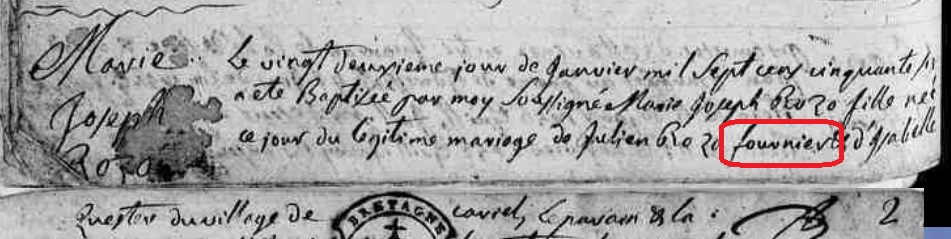 Marie
Joseph
Rozo
Le vingt deuxieme jour de Janvier mil Sept cens cinquante si
a éte Baptisée par moy Soussigné Marie Joseph Rozo fille neé
ce jour du légitime mariage de Julien Rozo fournier & d'Isabelle
Quester du village de
BRETAGNE
le parain & la :
2